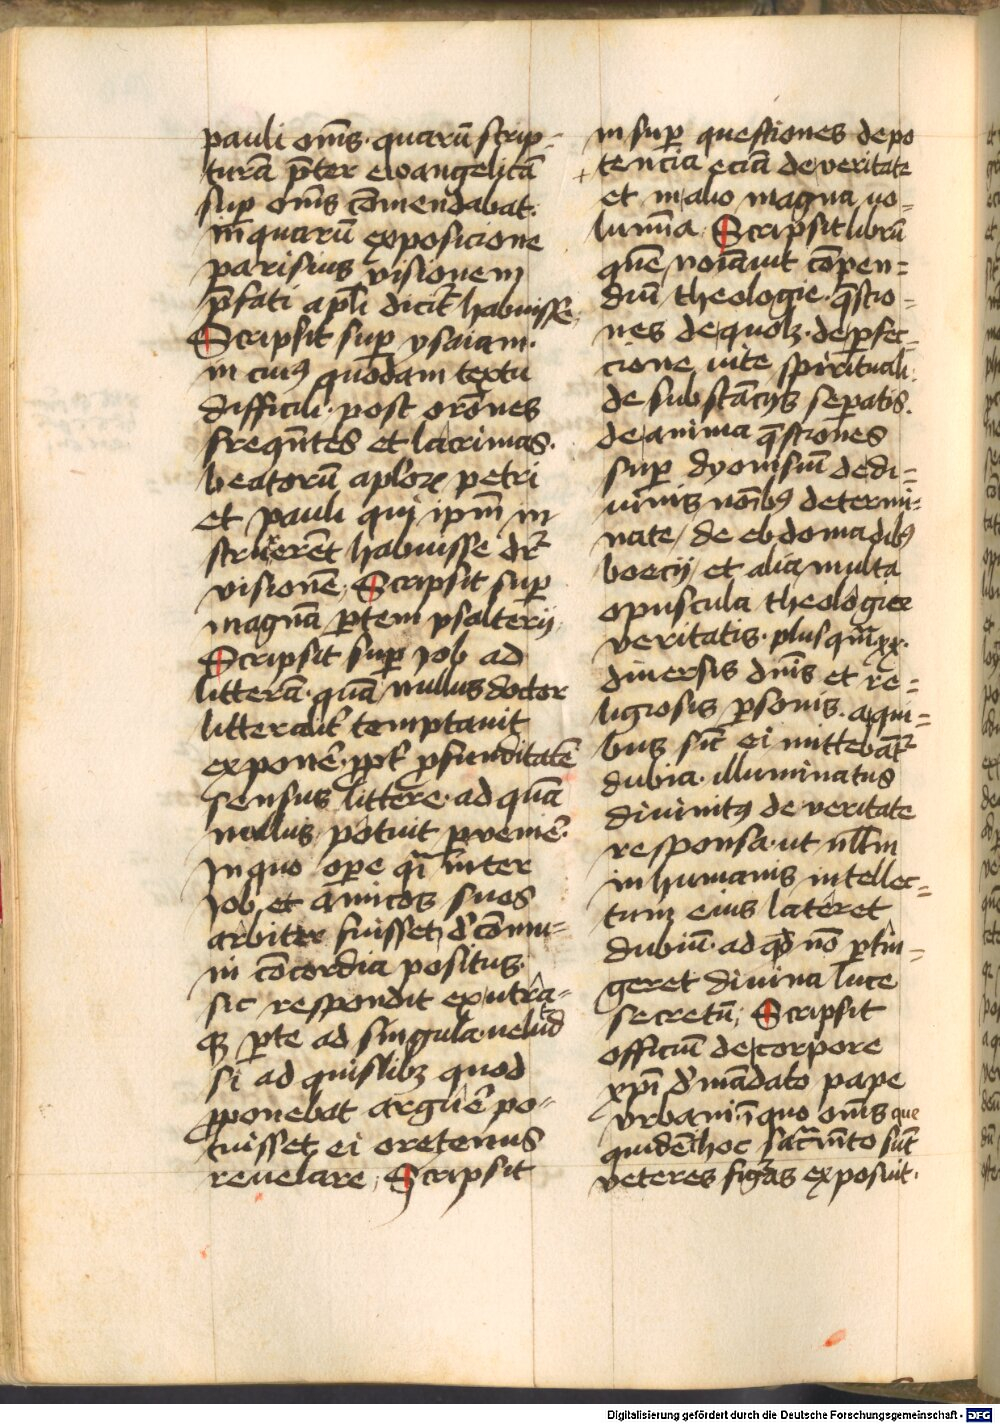 pauli om̄s. quarū scrip-
turā p̄ter ewangelicā
sup om̄s cōmendabat.
in quarū exposicione
parisius visionem
p̄fati apl̄i dicit̄ habuisse.
Scripsit sup ysaiam.
in cuiꝰ quodam textu
difficili. post orōnes
freqn̄tes et lacrimas.
beatorū aploꝝ petri
et pauli qui ip̄m in
struerēt habuisse dr̄
visionē, Scripsit sup
magnā ꝑtem psalterij,
Scripsit sup Job ad
litterā. quā nullus doctor
litteralit̄ temptauit
exponē. ꝓpt̄ ꝓfunditatē
sensus littere. ad quā
nullus potuit ꝑuenīe.
In quo oꝑe qͣi inter
Job et amicos suos
arbiter fuisset,
in cōcordia positus.
sic respondit ex utra-
qꝫ ꝑte ad singula. uelud
si ad quislibꝫ quod
ꝓponebat arguēe po-
tuisset ei oretenus
reuelare, Scripsit
in sup questiones de po
tencia eciā de veritate
et malo magna uo-
lumīa. Scripsit librū
quē noīauit cōpen-
diū theologie. q̄stio-
nes de quolꝫ. de ꝑfec-
cione uite spirituali.
de substācijs seꝑatis.
de anima q̄stiones
sup dyonisiū de di-
uinis noībꝰ determi-
nate, de ebdomadibꝰ
boecij, et alia multa
opuscula theologice
veritatis. plusqͣm xx.
diuersis dn̄is et re-
ligiosis ꝑsonis. a qui-
bus sic̄ ei mittebāt̄
dubia. illuminatus
diuinitꝰ de veritate
responsa. ut nll̄m
in humanis intellec-
tum eius lateret
dubiū. ad qd̄ nō ꝑtin-
geret diuina luce
secretū; Scripsit
officiū de corpore
xp̄i d' mādato pape
vrbani. ī quo om̄s que
quidē hoc sacͣm̄to sūt
veteres figͣas exposuit.
Digitalisierung gefördert durch die Deutsche Forschungsgemeinschaft - DFG